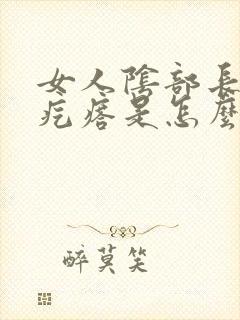 女人陰部長
疙瘩是怎麼
醉莫笑